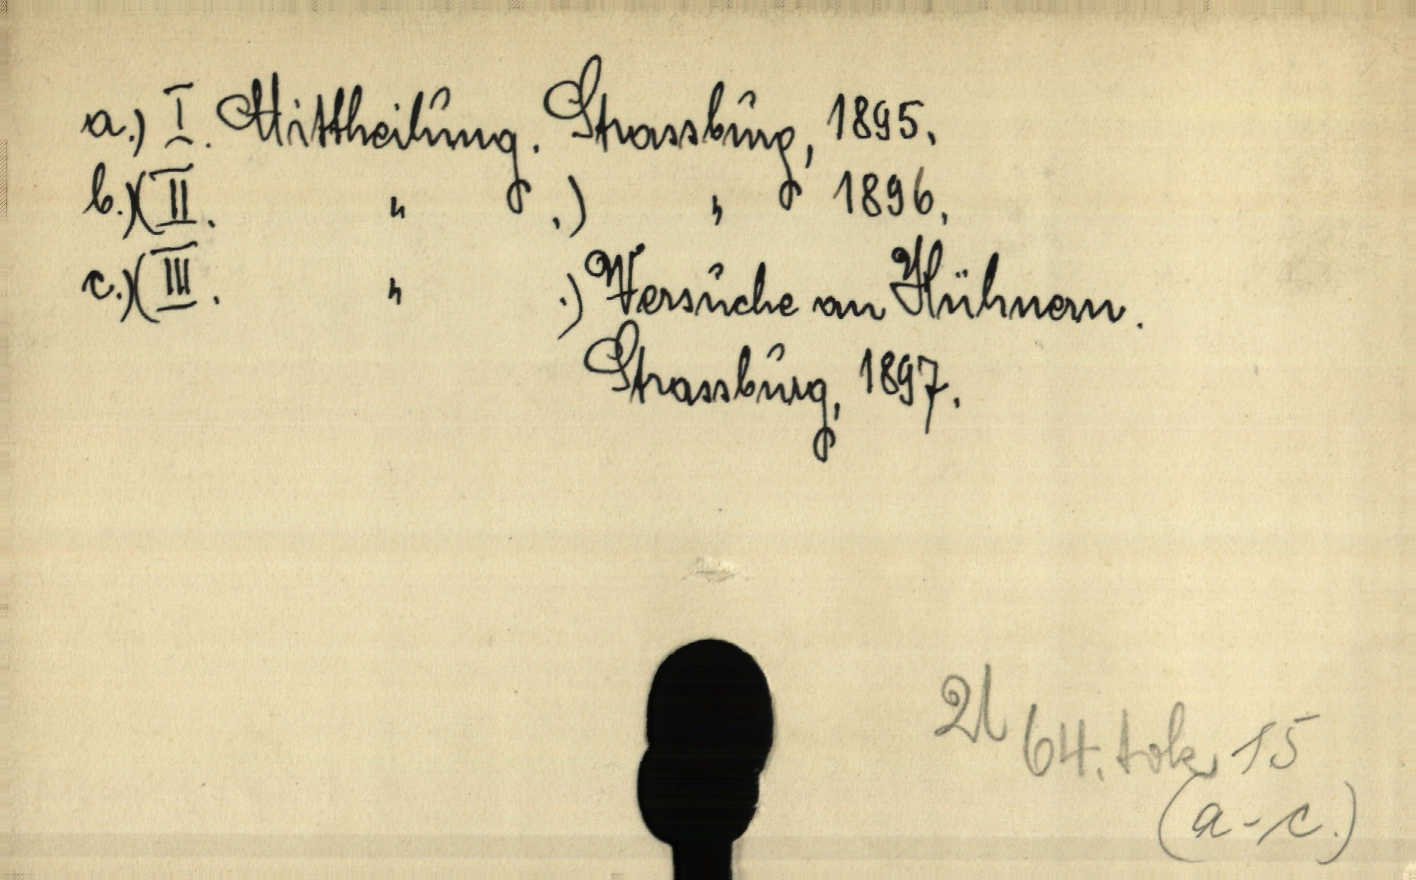 a.) I. Mittheilung. Strassburg, 1895.
b.) (II. " .) " 1896.
c.) (III. " .) Versuche an Hühnern.
Strassburg, 1897.
64. tok 15
(a-c.)